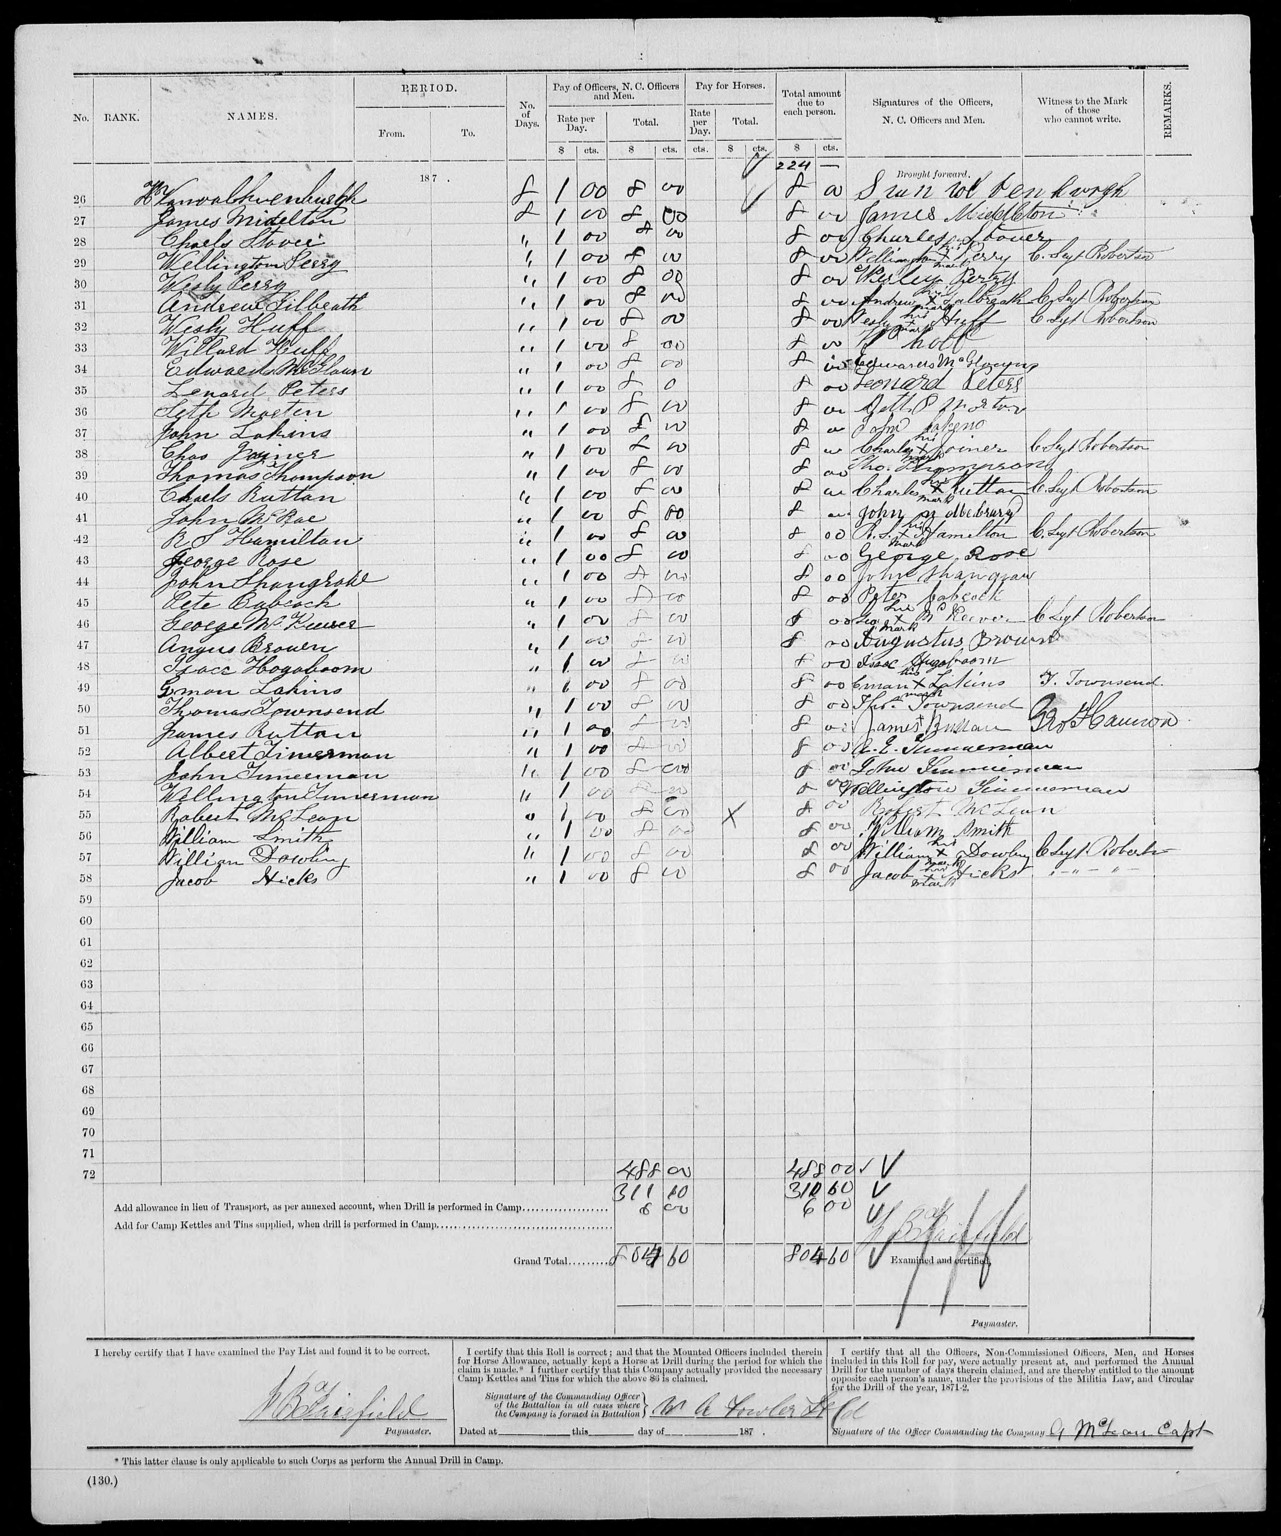 No. RANK. NAMES. PERIOD. No. of Days. Pay of Officers, N. C. Officers and Men. Pay for Horses. Total amount due to each person. Signatures of the Officers, N. C. Officers and Men. Witness to the Mark of those who cannot write. REMARKS.
From. To. Rate per Day. Total. Rate per Day. Total.
$ cts. $ cts. cts. $ cts. $ cts.
187 . 224 — Brought forward.
26 8 1 00 8 00 8 00
27 James Midelton 8 1 00 8 00 8 00 James Middleton
28 Charls Stover " 1 00 8 00 8 00 Charles Stover
29 Wellington Perry " 1 00 8 00 8 00 Wellington his X mark Perry C. Sgt Robertson
30 Wesly Perry " 1 00 8 00 8 00 Wesley Perry
31 Andrew Gilbeath " 1 00 8 00 8 00 Andrew his X mark Galbreath C. Sgt Robertson
32 Wesly Huff " 1 00 8 00 8 00 Wesly his X mark Huff C Sgt Robertson
33 Willard Huff " 1 00 8 00 8 00
34 Edward McGlaun " 1 00 8 00 8 00 Edward
35 Lenard Peters " 1 00 8 0 8 00 Leonard Peters
36 Seth Morten " 1 00 8 00 8 00 Seth P Morton
37 John Lakins " 1 00 8 00 8 00 John Lakins
38 Chas Joyner " 1 00 8 00 8 00 Charles his X mark Joiner C Sgt Robertson
39 Thomas Thompson " 1 00 8 00 8 00 Tho. Thompson
40 Charls Ruttan " 1 00 8 00 8 00 Charles his X mark Ruttan C. Sgt Robertson
41 John McRae " 1 00 8 00 8 00 John
42 R S Hamilton " 1 00 8 00 8 00 R. S. his X mark Hamilton C. Sgt Robertson
43 George Rose " 1 00 8 00 8 00 George Rose
44 John Shangrobe " 1 00 8 00 8 00 John
45 Pete Babcock " 1 00 8 00 8 00 Peter Babcock
46 George McKeever " 1 00 8 00 8 00 Geo his X mark McKeever C Sgt Robertson
47 Angus Brown " 1 00 8 00 8 00 Augustus Brown
48 Isacc Hogoboom " 1 00 8 00 8 00 Isaac Hogoboom
49 Eman Lakins " 1 00 8 00 8 00 Eman his X mark Lakins T. Townsend
50 Thomas Townsend " 1 00 8 00 8 00 Thos. Townsend
51 James Ruttan " 1 00 8 00 8 00 James + Ruttan
52 Albert Timerman " 1 00 8 00 8 00 A. E. Timmerman
53 John Timerman " 1 00 8 00 8 00 John Timmerman
54 Wellington Timerman " 1 00 8 00 8 00 Wellington Timmerman
55 Robert McLean " 1 00 8 00 X 8 00 Robert McLean
56 William Smith " 1 00 8 00 8 00 William Smith
57 William Dowling " 1 00 8 00 8 00 William his X mark Dowling C Sgt Roberts
58 Jacob Hicks " 1 00 8 00 8 00 Jacob his X mark Hicks " - " - " - "
59
60
61
62
63
64
65
66
67
68
69
70
71
72 488 00 488 00
311 10 310 60
Add allowance in lieu of Transport, as per annexed account, when Drill is performed in Camp 6 00 6 00
Add for Camp Kettles and Tins supplied, when drill is performed in Camp
Grand Total 804 60 804 60 Examined and certified,
Paymaster.
I hereby certify that I have examined the Pay List and found it to be correct.
Paymaster.
I certify that this Roll is correct; and that the Mounted Officers included therein
for Horse Allowance, actually kept a Horse at Drill during the period for which the
claim is made.* I further certify that this Company actually provided the necessary
Camp Kettles and Tins for which the above $6 is claimed.
Signature of the Commanding Officer
of the Battalion in all cases where
the Company is formed in Battalion
Dated at this day of 187 .
I certify that all the Officers, Non-Commissioned Officers, Men, and Horses
included in this Roll for pay, were actually present at, and performed the Annual
Drill for the number of days therein claimed, and are thereby entitled to the amount
opposite each person's name, under the provisions of the Militia Law, and Circular
for the Drill of the year, 1871-2.
Signature of the Officer Commanding the Company A McLean Capt
* This latter clause is only applicable to such Corps as perform the Annual Drill in Camp.
(130.)